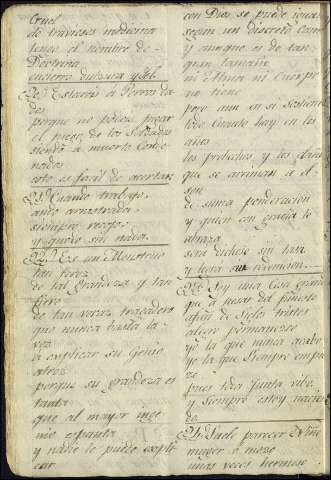 Cruel
de traviesas
tengo el nombre de
Doctrina
encierro dulzura y hiel.
Estareis á Perros da
dos
porque no podeis pecar
el de los Soldados
siendo á muerte Conde
nados
esto es facil de acertar
Cuando trabajo
ando arrastrada
siempre
y quedo sin nada
Es un Monstruo
tan feroz
de tal grandeza y tan
fiero
de tan voraz tragadero
que nunca basta la
voz
á explicar su Genio
atroz
porque su grandeza es
tanta
que al mayor inge
nio espanta
y nadie lo puede expli
car
con Dios se puede
segun un discreto
y aunque es de tan
gran tamaño
ni Alma ni Cuerpo
no tiene
pero aun en si sostiene
todo Cuanto hay en los
años
los probechos, y los daños
que se arriman á el
son
de suma ponderacion
y quien con gracia lo
abraza
será dichoso sin tasa
y
Soy una Cosa
que á pesar del
afan de Siglos tristes
alegre permanezco
yo la que nunca acabo
yo la que Siempre empie
zo
pues toda Junta vibo
y Siempre estoy nacien
do
Suele parecer Niño
muger ó mozo
unas veces hermoso